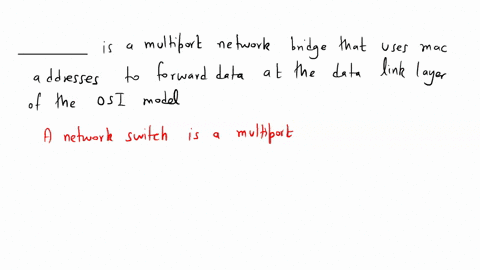 ________ is a multiport network bridge that uses mac
addresses to forward data at the data link layer
of the OSI model
A network switch is a multiport